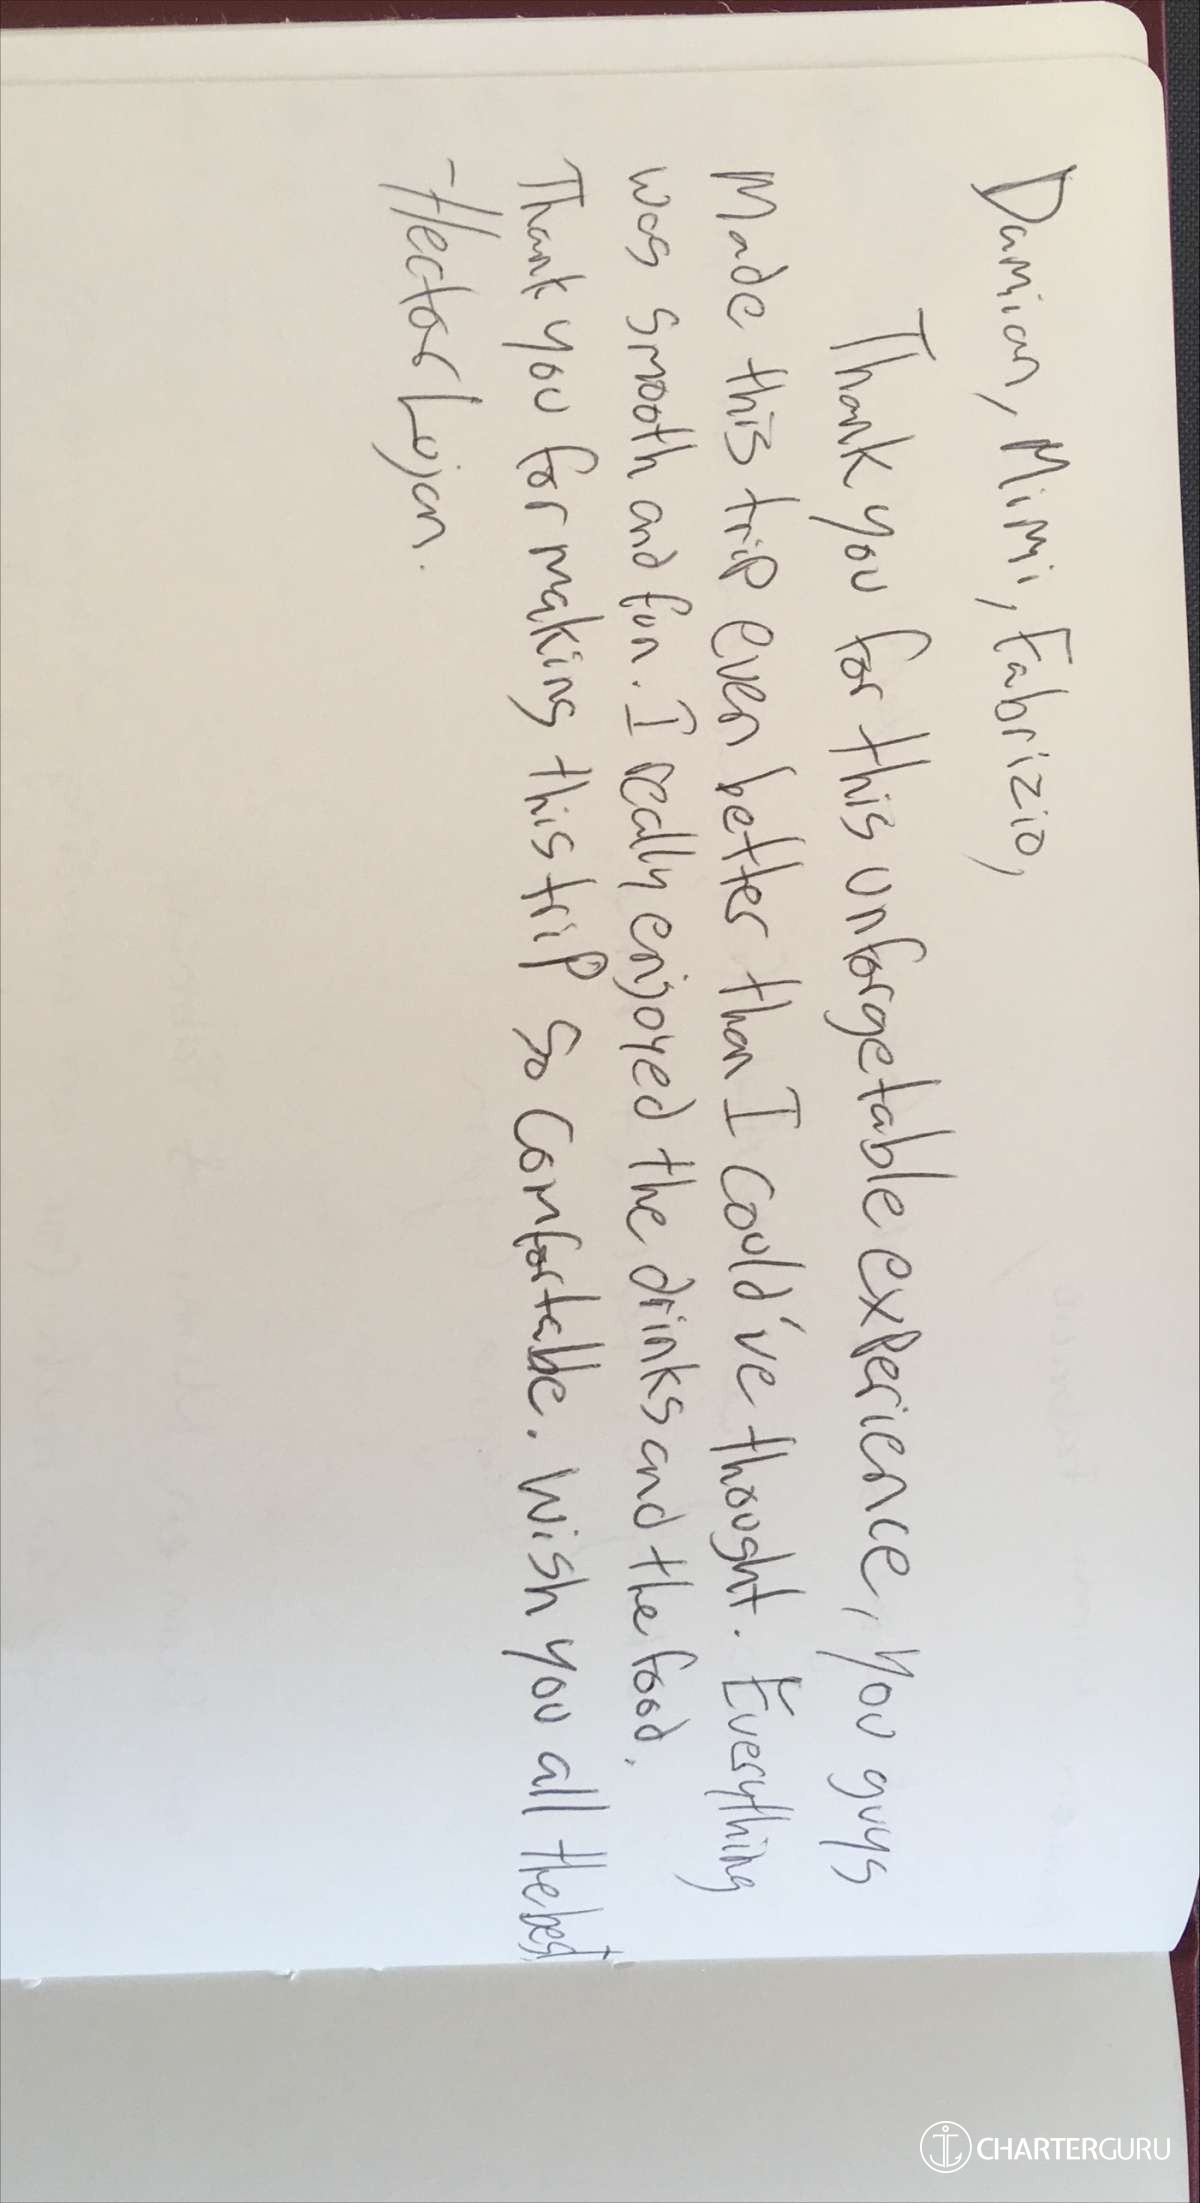 Damian, Mimi, Fabrizio,
Thank you for this unforgetable experience, you guys
Made this trip even better than I could've thought. Everything
was smooth and fun. I really enjoyed the drinks and the food.
Thank you for making this trip so comfortable. Wish you all the best
-Hector Lujan.
CHARTERGURU